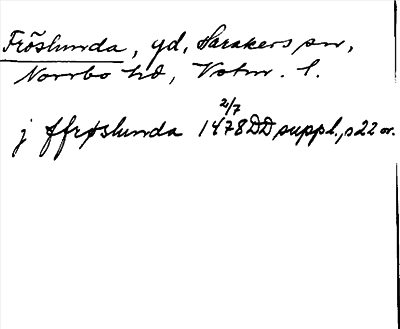 Fröslunda, gd, Harakers sn,
Norrbo hd, Vstm. l.
2/7
j ffrøslunda 1478 DD suppl., s 22 or.